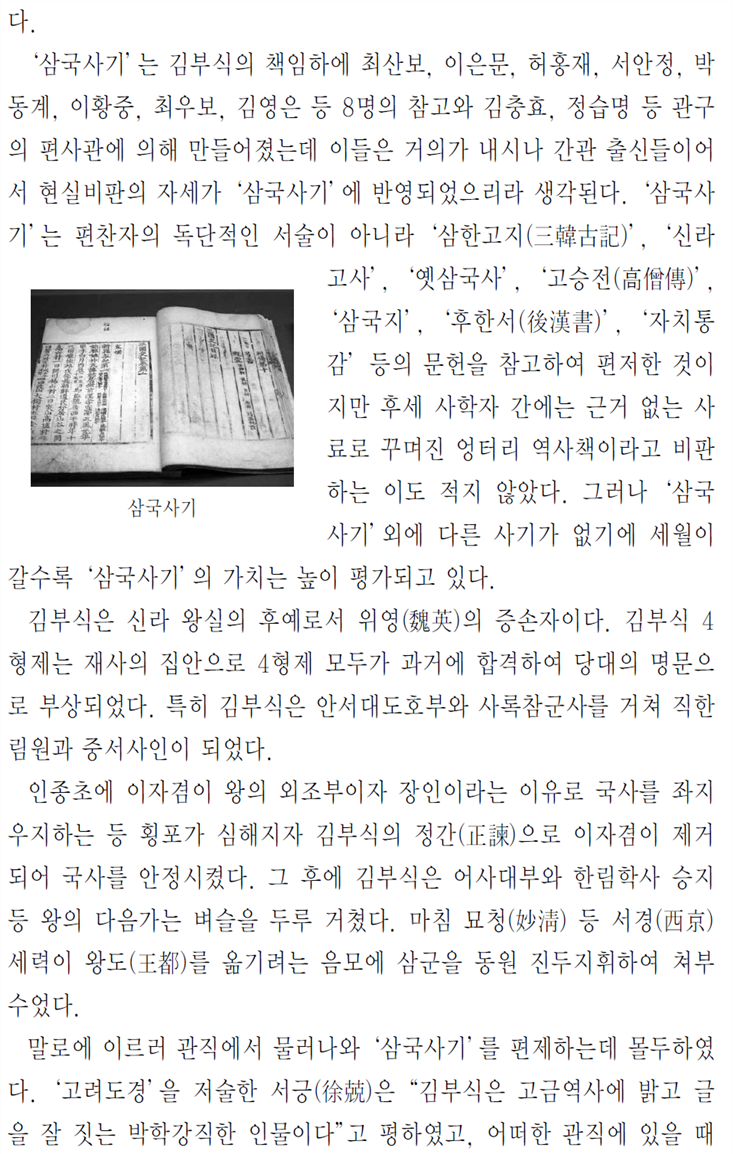 다.
‘삼국사기’는 김부식의 책임하에 최산보, 이은문, 허홍재, 서안정, 박
동계, 이황중, 최우보, 김영은 등 8명의 참고와 김충효, 정습명 등 관구
의 편사관에 의해 만들어졌는데 이들은 거의가 내시나 간관 출신들이어
서 현실비판의 자세가 ‘삼국사기’에 반영되었으리라 생각된다. ‘삼국사
기’는 편찬자의 독단적인 서술이 아니라 ‘삼한고지(三韓古記)’, ‘신라
고사’, ‘옛삼국사’, ‘고승전(高僧傳)’,
‘삼국지’, ‘후한서(後漢書)’, ‘자치통
감’ 등의 문헌을 참고하여 편저한 것이
지만 후세 사학자 간에는 근거 없는 사
료로 꾸며진 엉터리 역사책이라고 비판
하는 이도 적지 않았다. 그러나 ‘삼국
사기’외에 다른 사기가 없기에 세월이
삼국사기
갈수록 ‘삼국사기’의 가치는 높이 평가되고 있다.
김부식은 신라 왕실의 후예로서 위영(魏英)의 증손자이다. 김부식 4
형제는 재사의 집안으로 4형제 모두가 과거에 합격하여 당대의 명문으
로 부상되었다. 특히 김부식은 안서대도호부와 사록참군사를 거쳐 직한
림원과 중서사인이 되었다.
인종초에 이자겸이 왕의 외조부이자 장인이라는 이유로 국사를 좌지
우지하는 등 횡포가 심해지자 김부식의 정간(正諫)으로 이자겸이 제거
되어 국사를 안정시켰다. 그 후에 김부식은 어사대부와 한림학사 승지
등 왕의 다음가는 벼슬을 두루 거쳤다. 마침 묘청(妙淸) 등 서경(西京)
세력이 왕도(王都)를 옮기려는 음모에 삼군을 동원 진두지휘하여 쳐부
수었다.
말로에 이르러 관직에서 물러나와 ‘삼국사기’를 편제하는데 몰두하였
다. ‘고려도경’을 저술한 서긍(徐兢)은 “김부식은 고금역사에 밝고 글
을 잘 짓는 박학강직한 인물이다”고 평하였고, 어떠한 관직에 있을 때